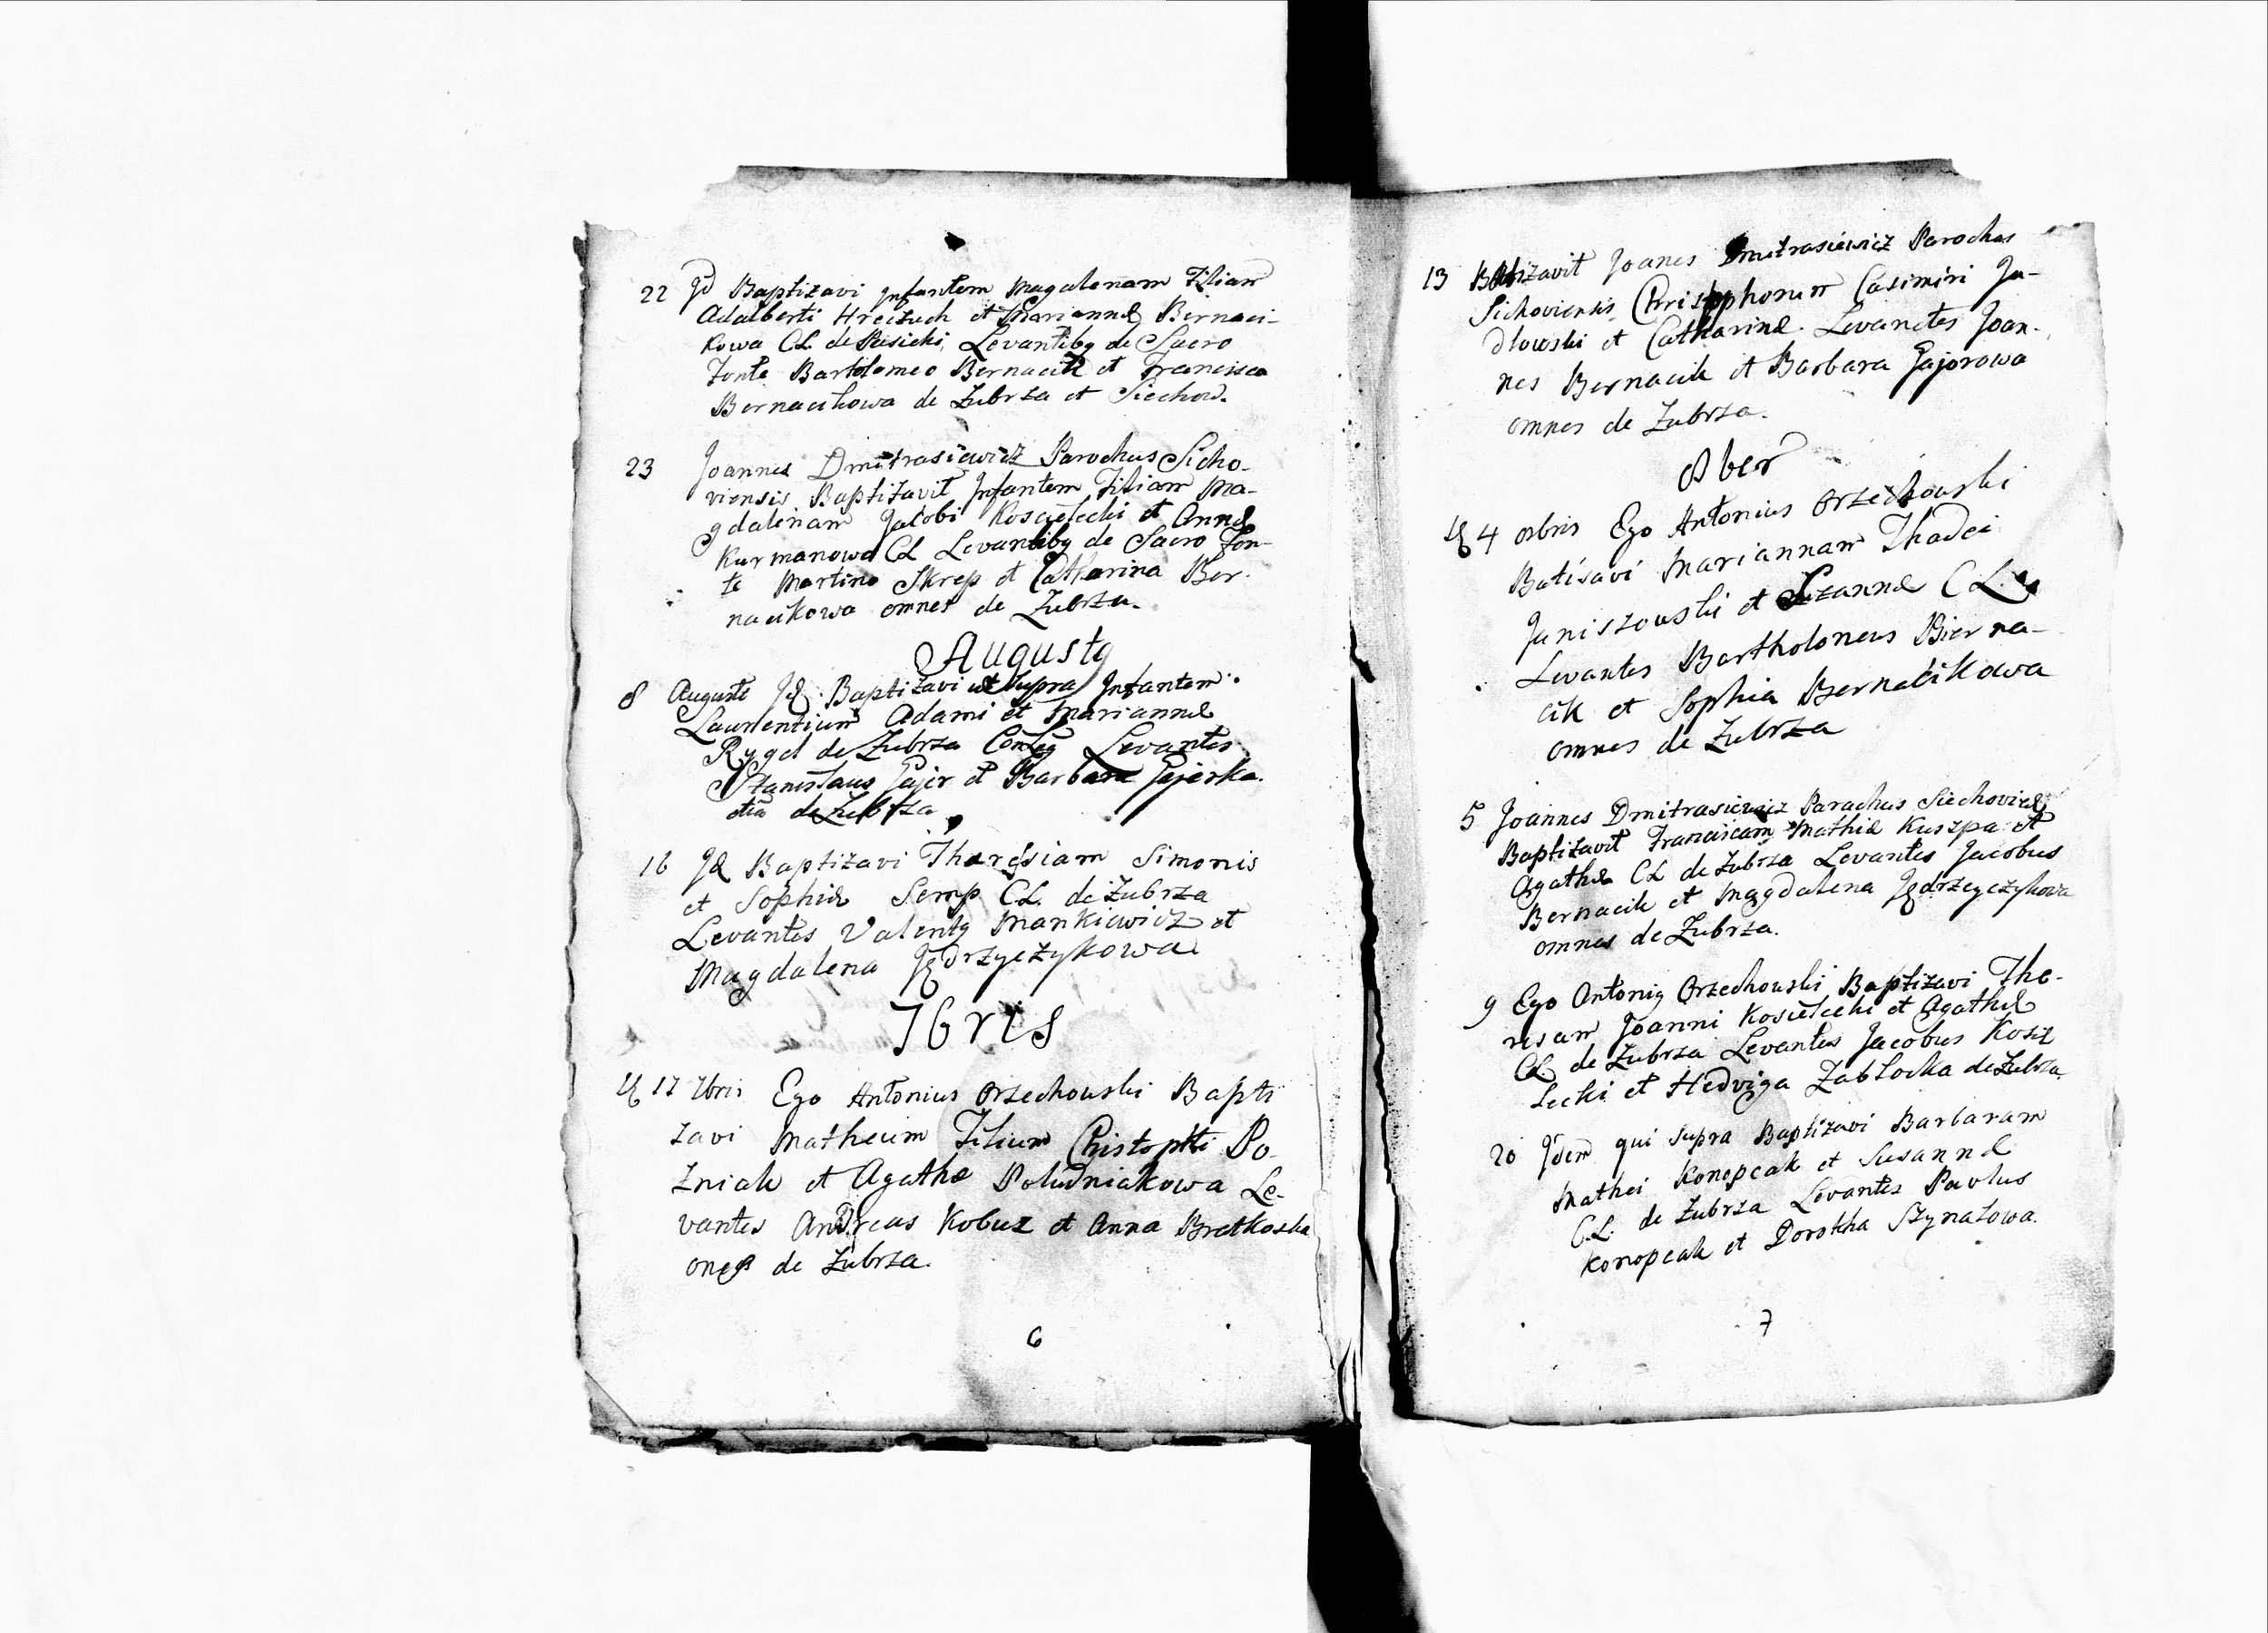 22 Id Baptizavi Infantem Magdalenam Filiam
Adalberti Hreczuch et Mariannæ Bernaci-
kowa CL de Pasieki, Levantibg de Sacro
Fonte Bartolomeo Bernacik et Francisca
Bernacikowa de Zubrza et Siechow.
23 Joannes Dmitrasiewicz Parochus Sicho-
viensis Baptizavit Infantem Filiam Ma-
gdalenam Jacobi Koscielecki et Annæ
Kurmanowa CL Levantibg de Sacro Fon-
te Martino Skrep et Catharina Ber-
nacikowa omnes de Zubrza.
Augustg
8 Auguste Id. Baptizavi ut supra Infantem
Laurentium Adami et Mariannæ
Rygel de Zubrza ConLeg Levantes
Stanislaus Gajer et Barbara Gajerka.
de Zubrza
16 Id Baptizavi Theresiam Simonis
et Sophiæ Semp CL. de Zubrza
Levantes Valentg Mankiewicz et
Magdalena Jędrzyczykowa
7bris
17 7bris Ego Antonius Orzechowski Bapti
zavi Matheum Filium Christophi Po-
zniak et Agathæ Poludniakowa Le-
vantes Andreas Kobuz et Anna Bratkoska
de Zubrza.
6
13 Batizavit Joanes Dmitrasiewicz Parochus
Sichoviensis, Christophorum Casimiri Ja-
dlowski et Catharinæ. Levanctes Joan-
nes Bernacik et Barbara Gajorowa
omnes de Zubrza.
8ber
4 8bris Ego Antonius Orzechowski
Batisavi Mariannam Thadei
Janiszowski et Suzannæ CL
Levantes Bartholoneus Bierna-
cik et Sophia Bernacikowa
omnes de Zubrza
5 Joannes Dmitrasiewicz Parachus Siechovien
Baptizavit Franciscam Mathiæ Kuszpa et
Agathæ CL de Zubrza Levantes Jacobus
Bernacik et Magdalena Jędrzeyczykowa
omnes de Zubrza.
9 Ego Antonig Orzechowski Baptizavi The-
resam Joanni Kosielecki et Agathæ
CL. de Zubrza Levantes Jacobus Kosie
lecki et Hedviga Zablocka de Zubrza
20 Idem qui supra Baptizavi Barbaram
Mathei Konopcak et Susannæ
C.L. de Zubrza Levantes Pavlus
Konopcak et Dorotha Szynalowa.
7